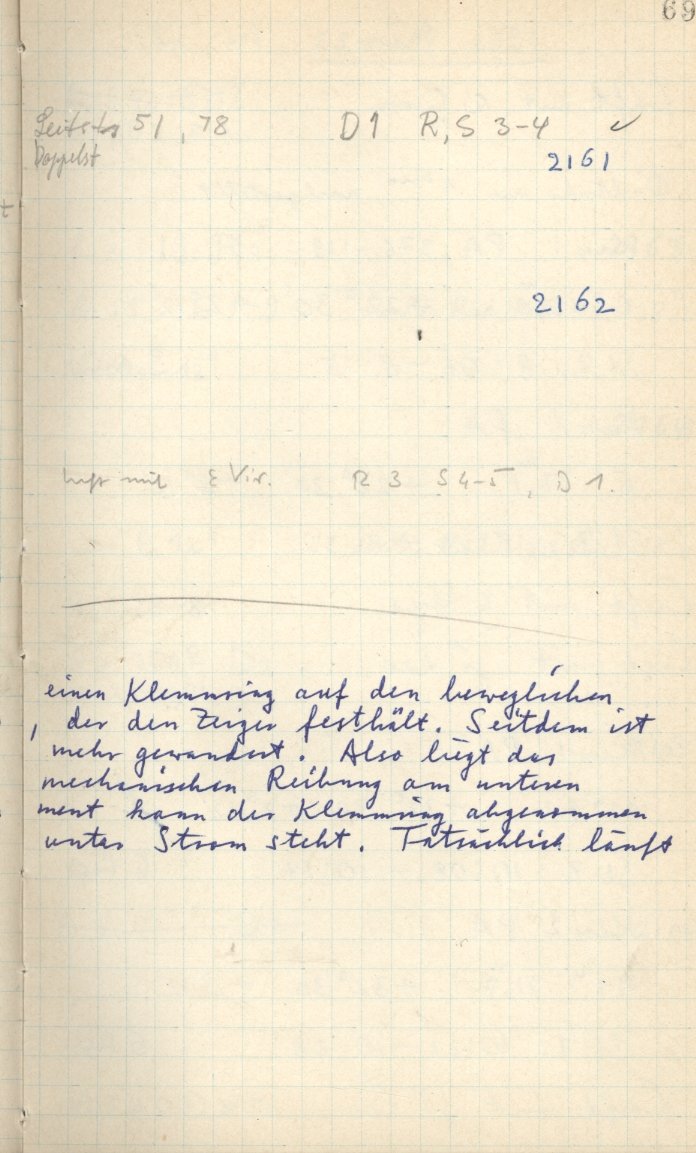 69
Leitst 51, 78 D1 R, S 3-4 ✓
Doppelst
2161
2162
mit ε Vir. R 3 S 4-5, D 1.
einen Klemmring auf den beweglichen
, der den Zeiger festhält. Seitdem ist
mehr gewandert. Also liegt das
mechanischen Reibung am unteren
ment kann der Klemmring abgenommen
unter Strom steht. Tatsächlich läuft